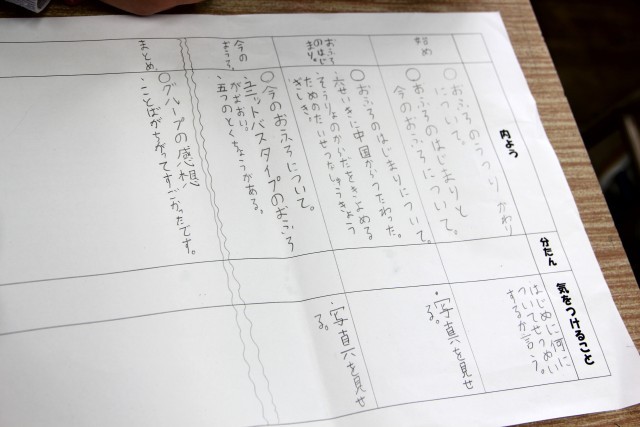 内よう
分たん
気をつけること
○おふろのうつりかわり
について。
○おふろのはじまりと
今のおふろについて。
はじめに何に
ついてせつめい
するか言う。
おふろ
のはじ
まり。
○おふろのはじまりについて。
六せいきに中国からつたわった。
・そうりょのからだをきよめる
ためのたいせつなしゅうきょう
ぎしき。
・写真を見せ
る。
今の
おふろ。
○今のおふろについて。
・ユニットバスタイプのおふろ
がおおい。
・五つのとくちょうがある。
・写真を見せ
る。
まとめ。
○グループの感想
・ことばがちがってすごかったです。